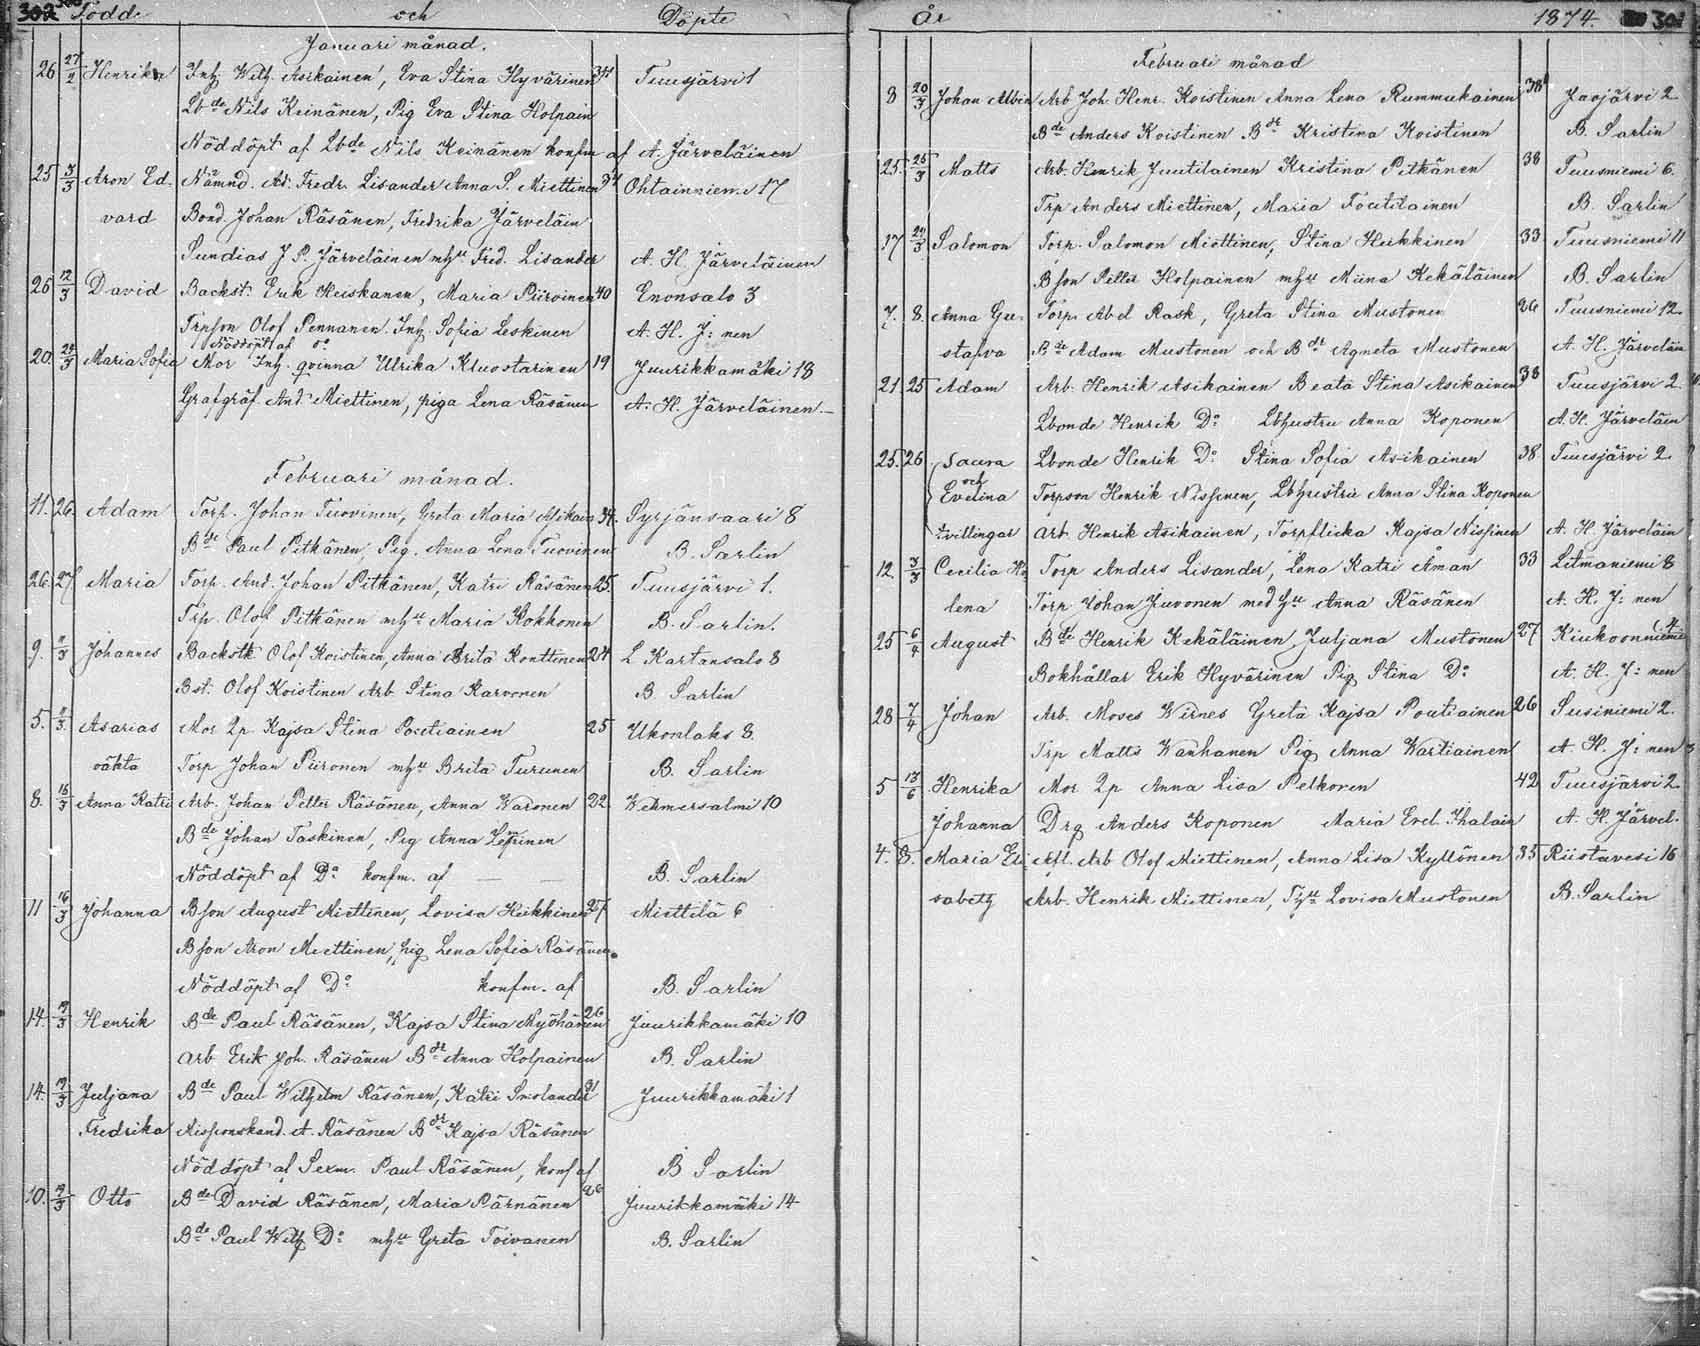 302 Födde och Döpte
Januari månad.
26 27/2 Henrika Inh. Wilh. Asikainen, Eva Stina Hyvärinen 34 Tuusjärvi 1
Lbde Nils Keinänen, Pig Eva Stina Holpain
Nöddöpt af Lbde Nils Keinänen konfm af A. Järveläinen
25 3/3 Aron Ed- Nämnd. Ad. Fredr. Lisander Anna S. Miettinen 34 Ohtainniemi 17
vard Bond. Johan Räsänen, Fredrika Järveläin
Sundias J P. Järveläinen mhu Fred. Lisander A. H. Järveläinen
26 12/3 David Backst. Erik Heiskanen, Maria Piiroinen 40 Enonsalo 3
Trpson Olof Pennanen. Inh. Sofia Leskinen A. H. J: nen
Nöddöpt af do
20. 24/3 Maria Sofia Mor Inh. qvinna Ulrika Kluostarinen 19 Juurikkamäki 18
Grafgräf. And. Miettinen, piga Lena Räsänen A. H. Järveläinen
Februari månad.
11. 26. Adam Torp. Johan Tuovinen, Greta Maria Asikain 34. Syrjänsaari 8
Bde Paul Pitkänen, Pig. Anna Lena Tuovinen B. Sarlin
26. 27. Maria Torp. And. Johan Pitkänen, Katri Räsänen 25. Tuusjärvi 1.
Trp. Olof Pitkänen mhu Maria Kokkonen B. Sarlin.
9. /3 Johannes Backstk Olof Koistinen, Anna Brita Konttinen 24 L Kartansalo 8
Bst. Olof Koistinen Arb Stina Karvonen B. Sarlin
5. /3. Asarias Mor Lp. Kajsa Stina Poutiainen 25 Ukonlaks 8.
oäkta Torp Johan Piironen mhu Brita Turunen B. Sarlin
8. 16/3 Anna Katri Arb. Johan Petter Räsänen, Anna Waronen 22. Wehmersalmi 10
Bde Johan Taskinen, Pig Anna
Nöddöpt af Do konfm. af — — B. Sarlin
11 16/3 Johanna Bson August Miettinen, Lovisa Heikkinen 27 Miettilä 6
Bson Aron Miettinen, pig Lena Sofia Räsänen.
Nöddöpt af Do konfm. af B. Sarlin
14. /3 Henrik Bde Paul Räsänen, Kajsa Stina Myöhänen 26 Juurikkamäki 10
Arb Erik Joh. Räsänen Bdr Anna Holpainen B. Sarlin
14. /3 Juljana Bde Paul Wilhelm Räsänen, Katri Smolander 31 Juurikkamäki 1
Fredrika Missionskand. A. Räsänen Bdr Kajsa Räsänen
Nöddöpt af Sexm. Paul Räsänen, konf af B Sarlin
10. /3 Otto Bde David Räsänen, Maria Pärnänen 26 Juurikkamäki 14
Bde Paul Wilh Do mhu Greta Toivanen B. Sarlin
År 1874. 303
Februari månad
8 20/3 Johan Albin Arb Joh. Henr. Koistinen Anna Lena Rummukainen 38 Jaojärvi 2
Bde Anders Koistinen Bdr Kristina Koistinen B. Sarlin
25. 25/3 Matts Arb. Henrik Juutilainen Kristina Pitkänen 38 Tuusniemi 6.
Trp Anders Miettinen, Maria Toutilainen B. Sarlin
17 29/3 Salomon Torp. Salomon Miettinen, Stina Heikkinen 33 Tuusniemi 11
Bson Petter Holpainen mhu Miina Kekäläinen B. Sarlin
7. 8. Anna Gu- Torp. Abel Rask, Greta Stina Mustonen 26 Tuusniemi 12.
stafva Bde Adam Mustonen och Bdr Agneta Mustonen A. H. Järveläin
21. 25 Adam Arb. Henrik Asikainen Beata Stina Asikainen 38 Tuusjärvi 2.
Lbonde Henrik Do Lbhustru Anna Koponen A. H. Järveläin
25. 26 Saura Lbonde Henrik Do Stina Sofia Asikainen 38. Tuusjärvi 2.
och
Evelina Torpson Henrik Nissinen, Lbhustru Anna Stina Koponen
tvillingar Arb. Henrik Asikainen, Torpflicka Kajsa Nissinen A. H. Järveläin
12. 3/3 Cecilia He- Torp Anders Lisander, Lena Katri Åman 33 Litmaniemi 8
lena Torp Johan Juvonen med hu Anna Räsänen A. H. J: nen
25 6/4 August Bde Henrik Kekäläinen, Juljana Mustonen 27 Kiukoonniemi 4
Bokhållar Erik Hyvärinen Pig Stina Do A. H. J: nen
28 7/4 Johan Arb. Moses Wirnes Greta Kajsa Poutiainen 26 Susiniemi 2.
Trp Matts Wanhanen Pig Anna Wartiainen A. H. J: nen
5 13/6 Henrika Mor Lp Anna Lisa Pelkonen 42 Tuusjärvi 2
Johanna Drg Anders Koponen Maria Evel. Ihalain A. H. Järvel.
4. 8. Maria Eli- Afl. Arb Olof Miettinen, Anna Lisa Kyllönen 35 Riistavesi 16
sabeth Arb. Henrik Miettinen, Thu Lovisa Mustonen B. Sarlin